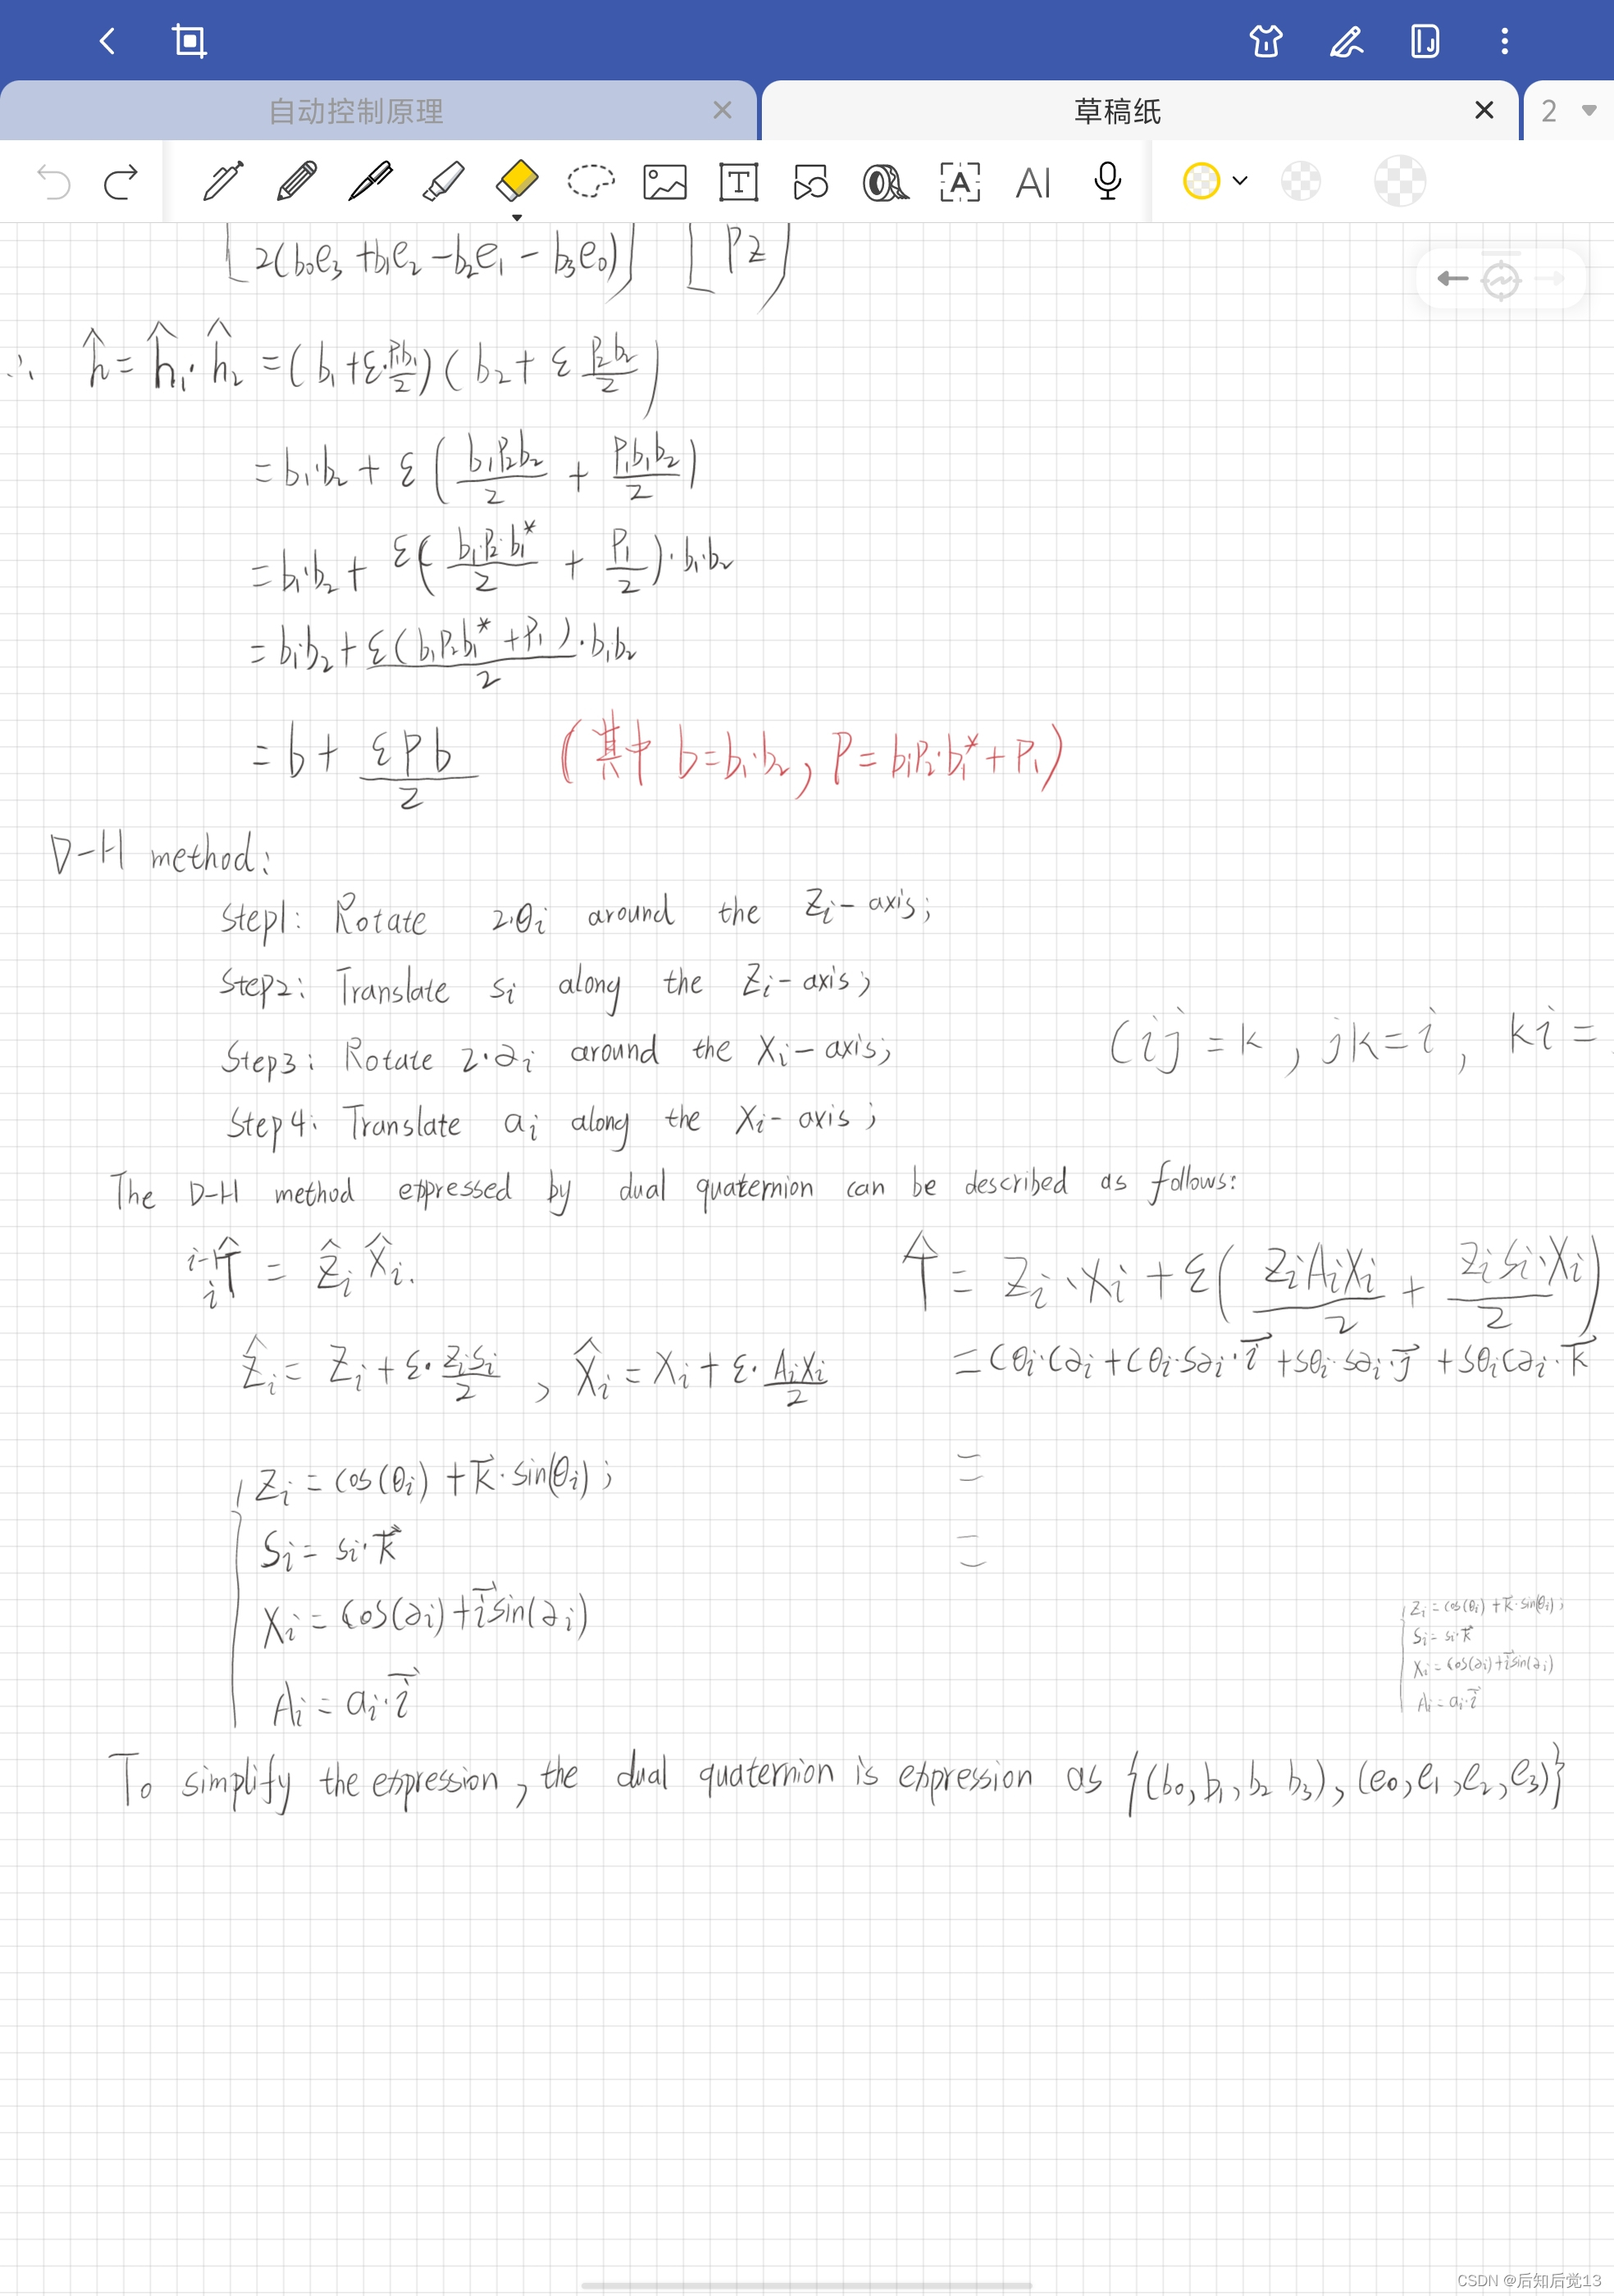 自动控制原理 × 草稿纸 × 2
T A AI
2(b₀e₃ + b₁e₂ - b₂e₁ - b₃e₀) Pz
∴ ĥ = ĥ₁·ĥ₂ = (b₁ + ε·P₁b₁/2)(b₂ + ε P₂b₂/2)
= b₁·b₂ + ε(b₁P₂b₂/2 + P₁b₁b₂/2)
= b₁·b₂ + ε(b₁P₂·b₁*/2 + P₁/2)·b₁·b₂
= b₁b₂ + ε(b₁P₂b₁* + P₁)/2·b₁b₂
= b + εPb/2 (其中 b=b₁·b₂, P=b₁P₂·b₁*+P₁)
D-H method:
Step1: Rotate 2·θi around the Zi-axis;
Step2: Translate si along the Zi-axis;
(ij=k, jk=i, ki=
Step3: Rotate 2·∂i around the Xi-axis;
Step4: Translate ai along the Xi-axis;
The D-H method expressed by dual quaternion can be described as follows:
i-1 i T̂ = Ẑi X̂i. T̂ = Zi·Xi + ε(ZiAiXi/2 + ZiSi·Xi/2)
Ẑi = Zi + ε·ZiSi/2 , X̂i = Xi + ε·AiXi/2 = Cθi·C∂i + Cθi·S∂i·i⃗ + Sθi·S∂i·j⃗ + SθiC∂i·k⃗
Zi = cos(θi) + k⃗·sin(θi); =
Si = si·k⃗ =
Xi = cos(∂i) + i⃗sin(∂i)
Ai = ai·i⃗
Zi = cos(θi) + k⃗·sin(θi);
Si = si·k⃗
Xi = cos(∂i) + i⃗sin(∂i)
Ai = ai·i⃗
To simplify the expression, the dual quaternion is expression as {(b₀,b₁,b₂ b₃),(e₀,e₁,e₂,e₃)}
CSDN @后知后觉13